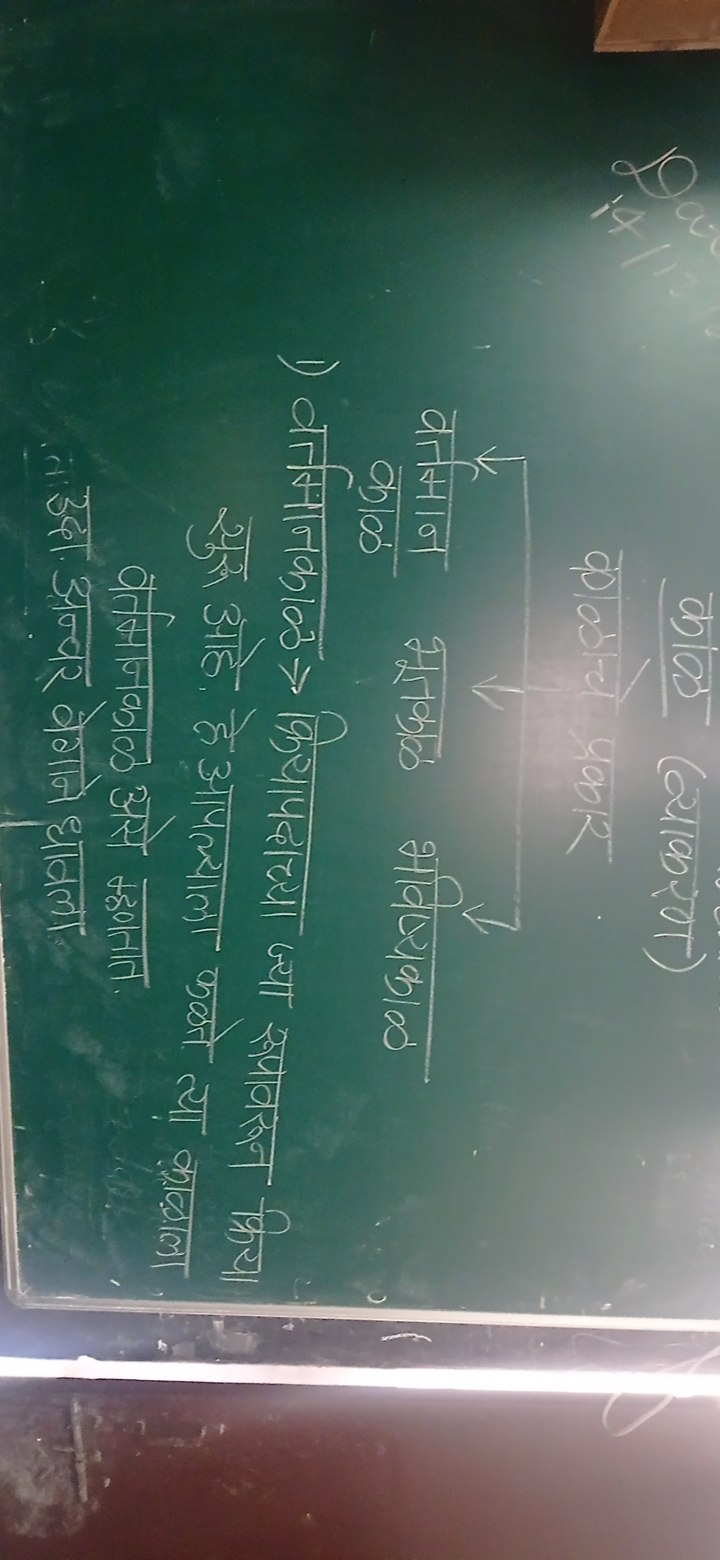 काळ (व्याकरण)
काळाचे प्रकार
वर्तमान काळ
भूतकाळ
भविष्यकाळ
1) वर्तमानकाळ → क्रियापदाच्या ज्या रूपावरून क्रिया
सुरू आहे. हे आपल्याला कळते त्या काळाला
वर्तमानकाळ असे म्हणतात.
उदा. अन्वर वेगाने धावला